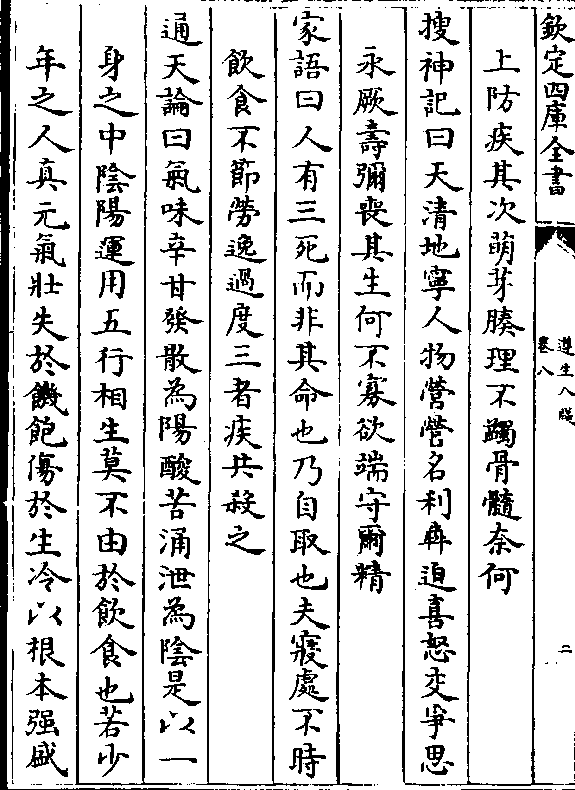 欽定四庫全書
遵生八牋
卷八
二
上防疾其次萌芽腠理不蠲骨髓奈何
搜神記曰天清地寧人物營營名利牽迫喜怒交爭思
永厥壽彌喪其生何不寡欲端守爾精
家語曰人有三死而非其命也乃自取也夫寢處不時
飲食不節勞逸過度三者疾共殺之
通天論曰氣味辛甘發散為陽酸苦涌泄為陰是以一
身之中陰陽運用五行相生莫不由於飲食也若少
年之人真元氣壯失於饑飽傷於生冷以根本强盛